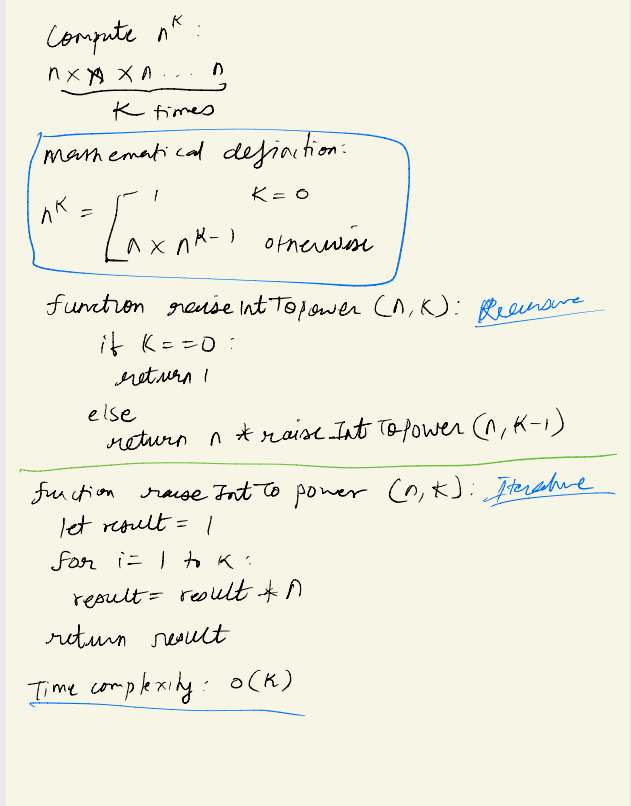 Compute n^k :
n × n × n ... n
K times
Mathematical definition:
n^K = [ 1 K = 0
n × n^K-1 otherwise
function raiseIntToPower (n, K): Recursive
if K == 0 :
return 1
else
return n * raiseIntToPower (n, K-1)
function raiseIntToPower (n, K): Iterative
let result = 1
for i = 1 to K :
result = result * n
return result
Time complexity : O(K)